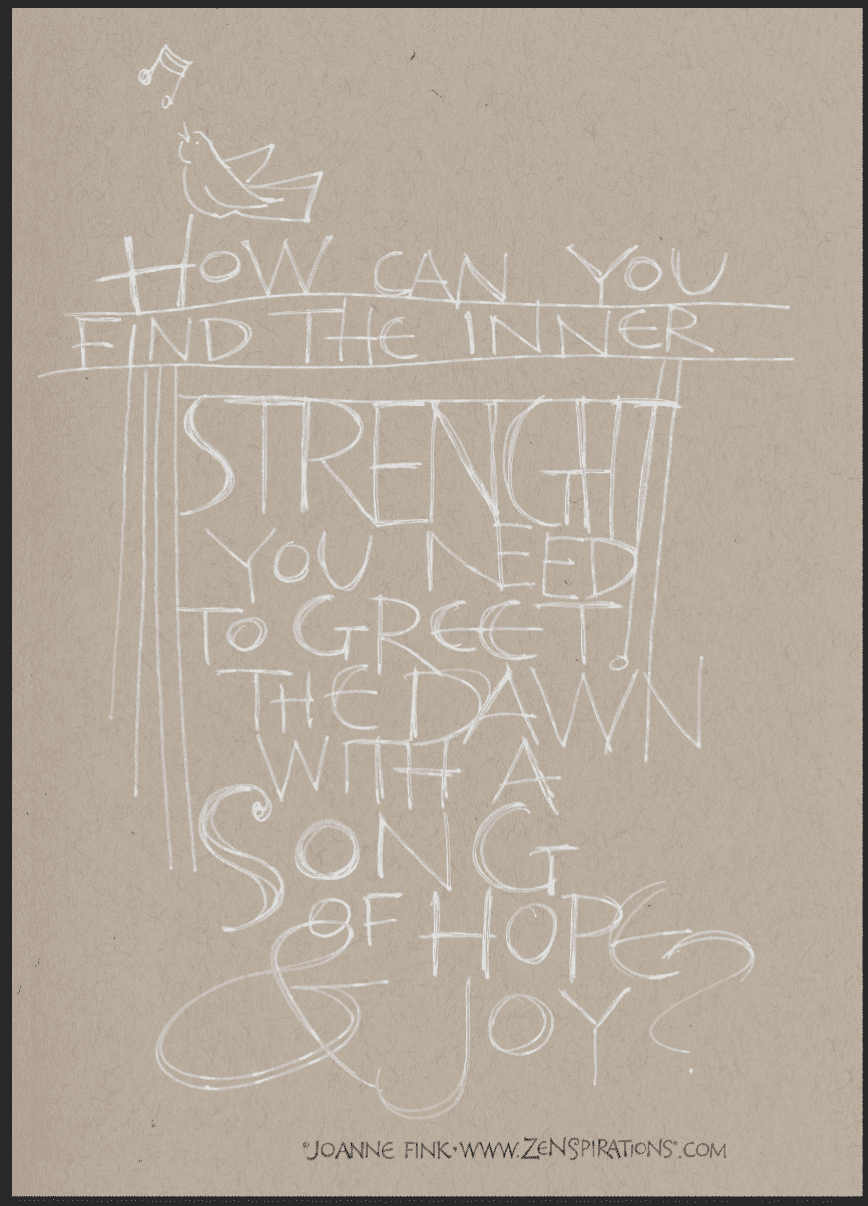 HOW CAN YOU
FIND THE INNER
STRENGHT
YOU NEED
TO GREET
THE DAWN
WITH A
SONG
OF HOPE
& JOY?
©JOANNE FINK•WWW.ZENSPIRATIONS®.COM